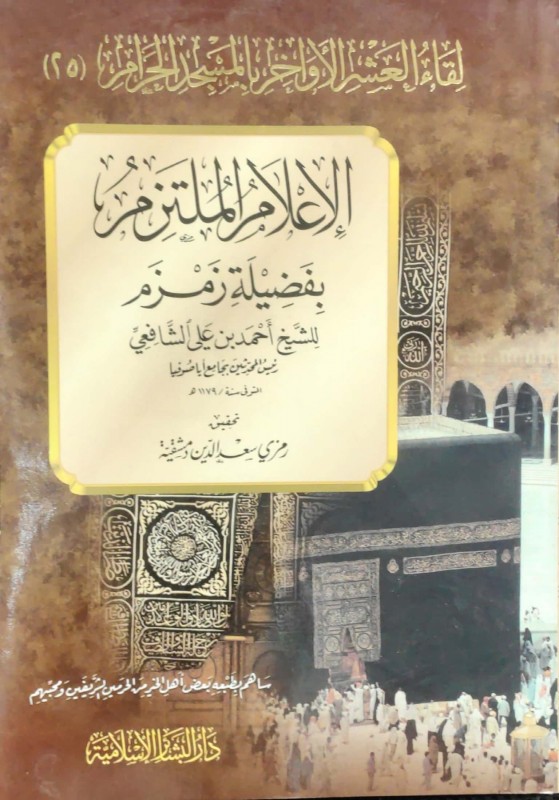 لِقَاءُ العَشْرِ الأَوَاخِرِ بِالمَسْجِدِ الحَرَامِ (٢٥)
الإِعْلَامُ المُلْتَزِمُ
بِفَضِيلَةِ زَمْزَم
لِلشَّيْخِ أَحْمَدَ بن عَلي الشَّافِعِيّ
رئيس المحدثين بجامع أياصوفيا
المتوفى سنة / ١١٧٩ هـ
تحقيق
رمزي سعد الدين دمشقية
ساهم بطبعه بعض أهل الخير من الحرمين الشريفين ومحبيهم
دار البشائر الإسلامية